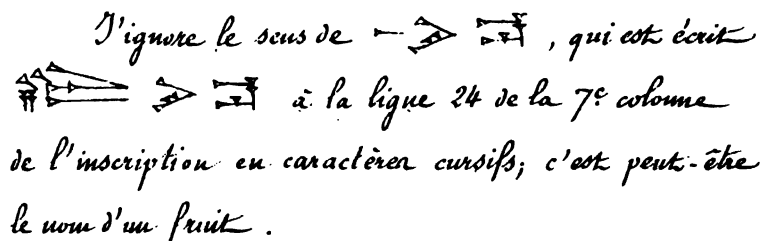 J'ignore le sens de , qui est écrit
à la ligne 24 de la 7e colonne
de l'inscription en caractères cursifs; c'est peut-être
le nom d'un fruit.